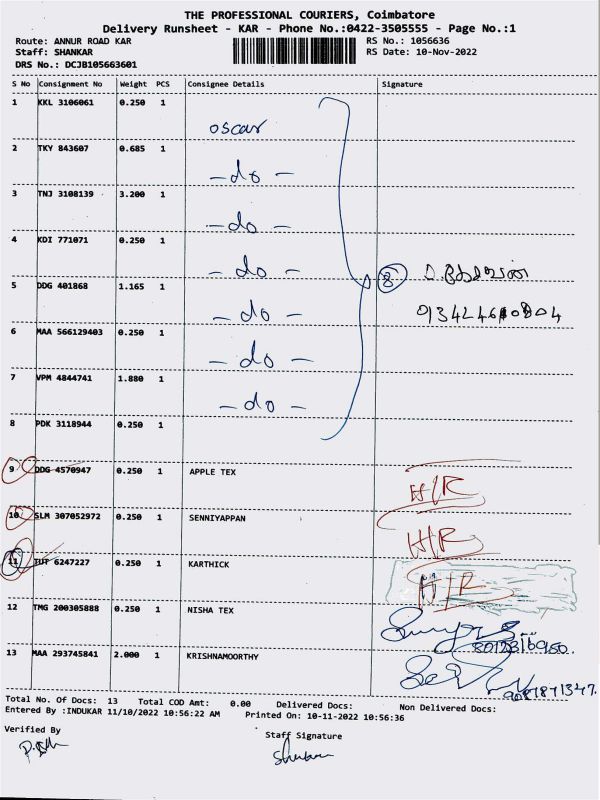 THE PROFESSIONAL COURIERS, Coimbatore
Delivery Runsheet - KAR - Phone No.:0422-3505555 - Page No.:1
Route: ANNUR ROAD KAR RS No.: 1056636
Staff: SHANKAR RS Date: 10-Nov-2022
DRS No.: DCJB105663601
S No Consignment No Weight PCS Consignee Details Signature
1 KKL 3106061 0.250 1
oscar
2 TKY 843607 0.685 1
- do -
3 TNJ 3108139 3.200 1
- do -
4 KDI 771071 0.250 1
- do - 8
5 DDG 401868 1.165 1
- do -
6 MAA 566129403 0.250 1
- do -
7 VPM 4844741 1.880 1
- do -
8 PDK 3118944 0.250 1
9 DDG 4570947 0.250 1 APPLE TEX H/R
10 SLM 307052972 0.250 1 SENNIYAPPAN H/R
11 6247227 0.250 1 KARTHICK H/R
12 TMG 200305888 0.250 1 NISHA TEX
13 MAA 293745841 2.000 1 KRISHNAMOORTHY
Total No. Of Docs: 13 Total COD Amt: 0.00 Delivered Docs: Non Delivered Docs:
Entered By :INDUKAR 11/10/2022 10:56:22 AM Printed On: 10-11-2022 10:56:36
Verified By Staff Signature